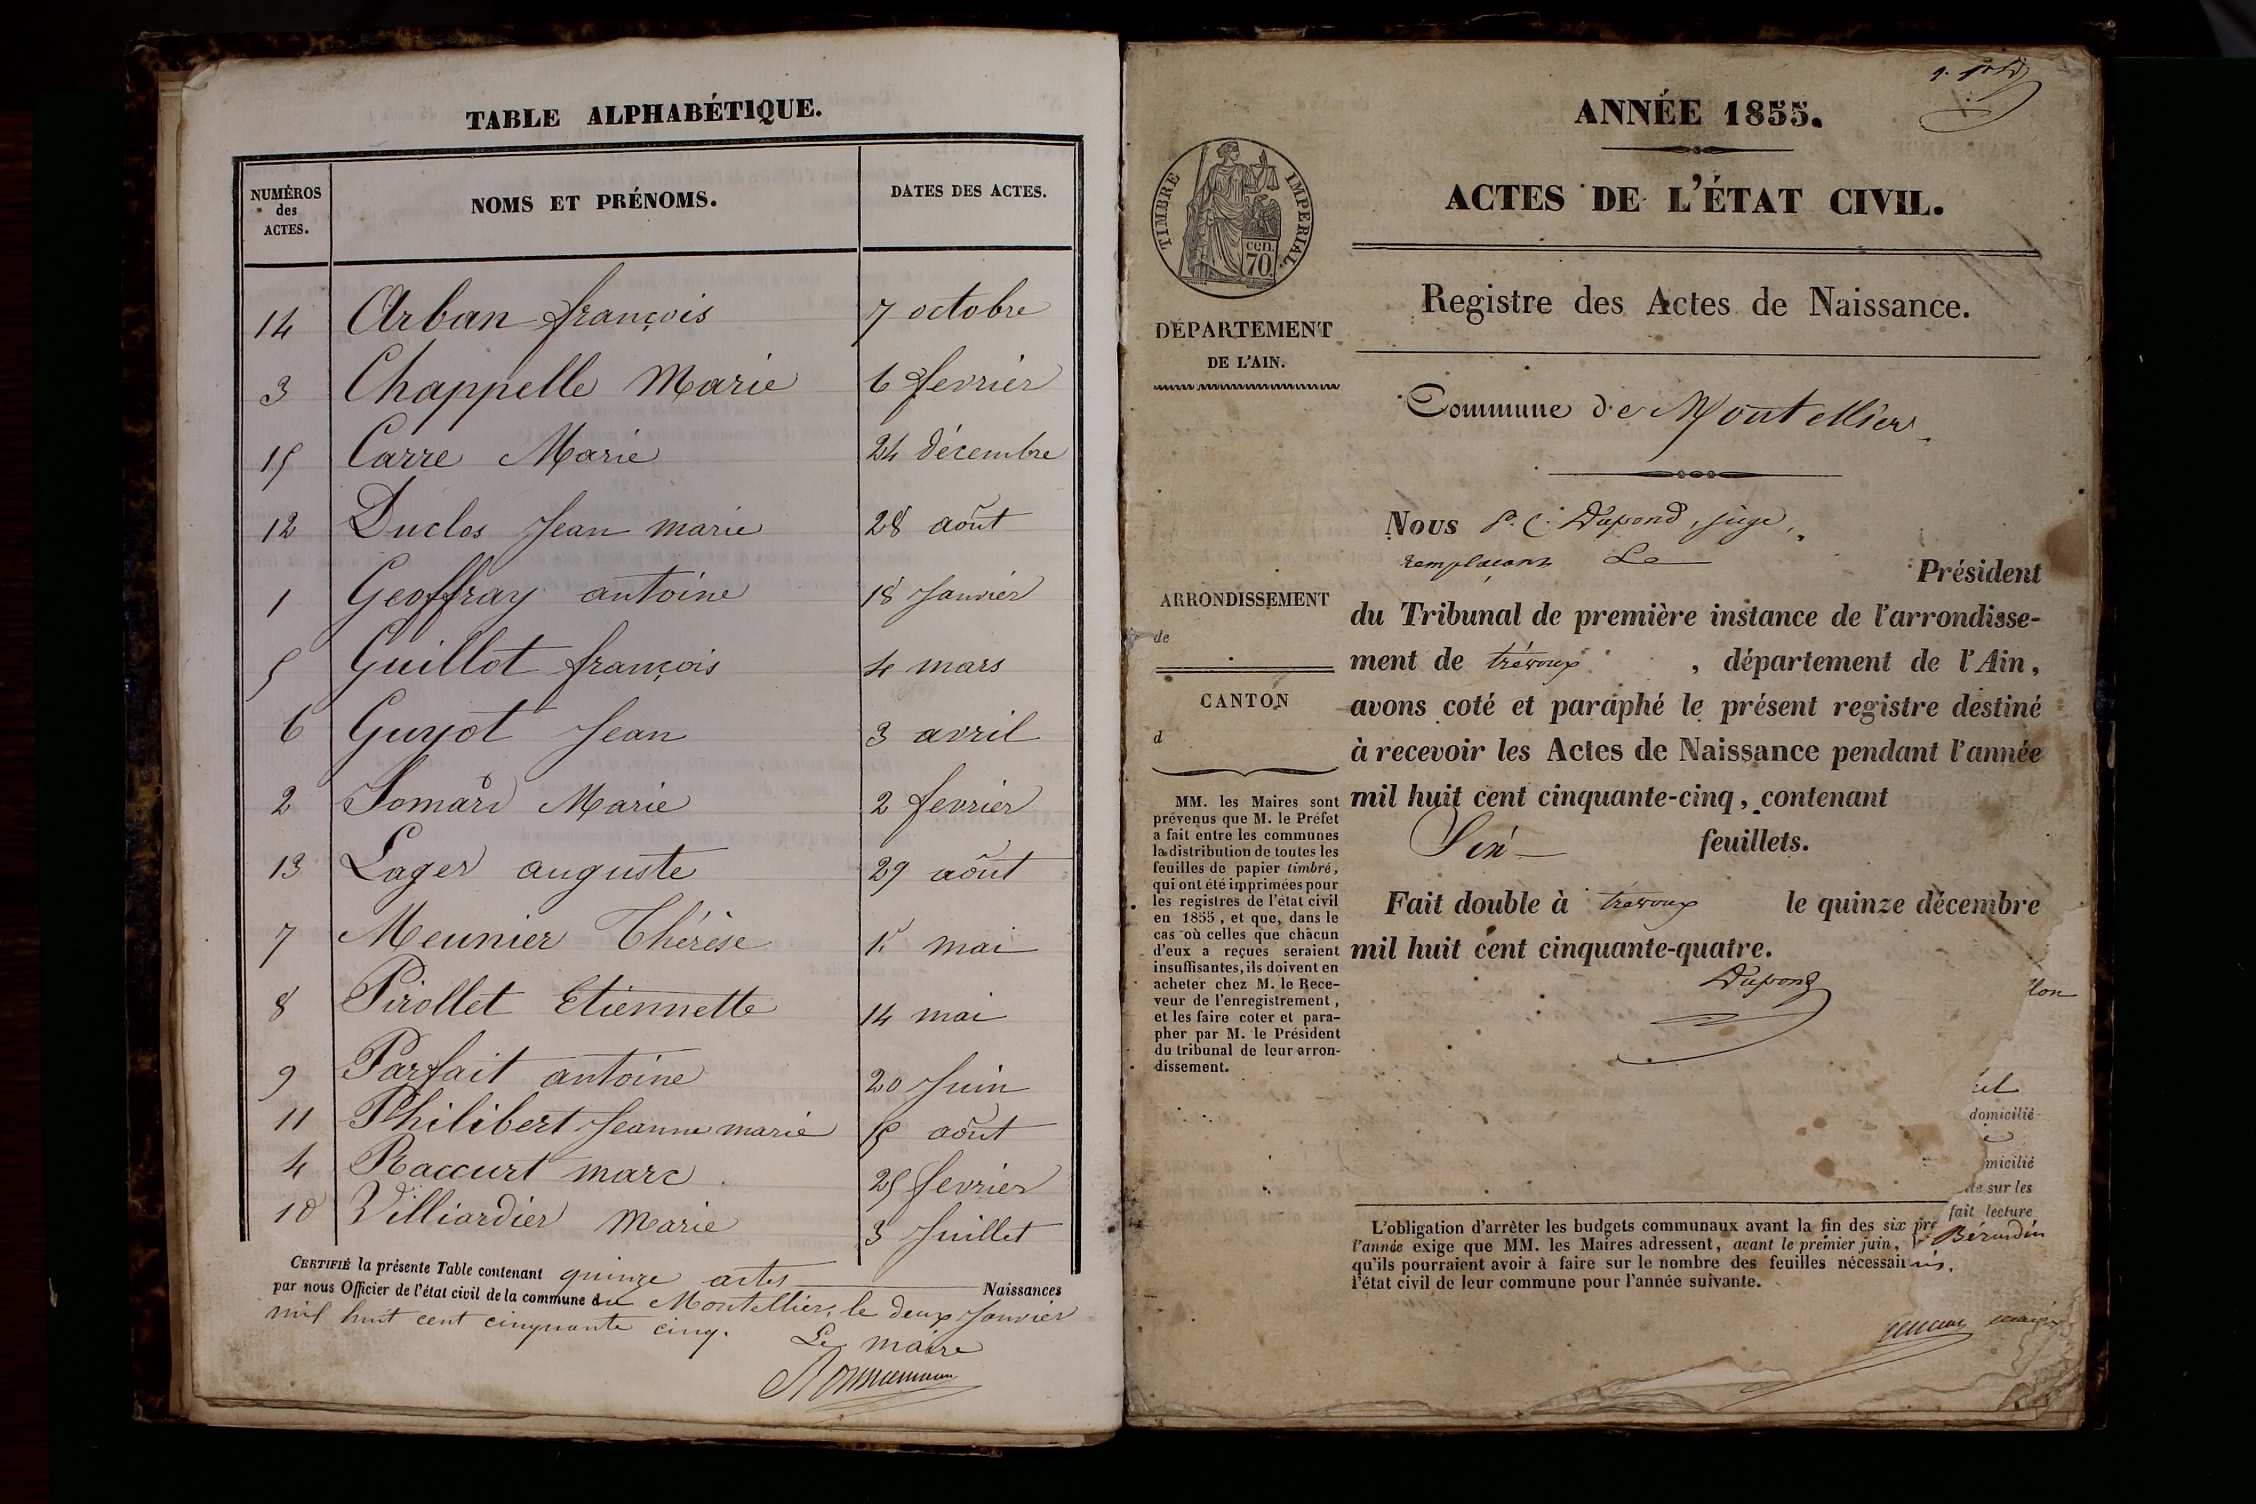 TABLE ALPHABÉTIQUE.
NUMÉROS des ACTES. NOMS ET PRÉNOMS. DATES DES ACTES.
14 Arban françois 7 octobre
3 Chappelle Marie 6 fevrier
15 Carre Marie 24 décembre
12 Duclos Jean marie 28 août
1 Geoffray antoine 18 Janvier
5 Guillot françois 4 mars
6 Guyot Jean 3 avril
2 Jomard Marie 2 fevrier
13 Lager auguste 29 août
7 Meunier Thérèse mai
8 Pirollet Etiennette 14 mai
9 Parfait antoine 20 Juin
11 Philibert Jeanne marie 15 août
4 Raccurt marc 25 fevrier
10 Villiardier Marie 3 Juillet
CERTIFIÉ la présente Table contenant quinze actes Naissances
par nous Officier de l'état civil de la commune du Montellier, le deux Janvier
mil huit cent cinquante cinq.
Le maire
ANNÉE 1855.
ACTES DE L'ÉTAT CIVIL.
Registre des Actes de Naissance.
TIMBRE IMPERIAL.
cen.
70.
DÉPARTEMENT
DE L'AIN.
ARRONDISSEMENT
de
CANTON
d
MM. les Maires sont
prévenus que M. le Préfet
a fait entre les communes
la distribution de toutes les
feuilles de papier timbré,
qui ont été imprimées pour
les registres de l'état civil
en 1855, et que, dans le
cas où celles que chacun
d'eux a reçues seraient
insuffisantes, ils doivent en
acheter chez M. le Rece-
veur de l'enregistrement,
et les faire coter et para-
pher par M. le Président
du tribunal de leur arron-
dissement.
Commune de Montellier
Nous P. C. Dupond, juge,
remplaçant Le Président
du Tribunal de première instance de l'arrondisse-
ment de trévoux, département de l'Ain,
avons coté et paraphé le présent registre destiné
à recevoir les Actes de Naissance pendant l'année
mil huit cent cinquante-cinq, contenant
Six feuillets.
Fait double à trévoux le quinze décembre
mil huit cent cinquante-quatre.
Dupond
domicilié
micilié
sur les
fait lecture
L'obligation d'arrêter les budgets communaux avant la fin des six pre
l'année exige que MM. les Maires adressent, avant le premier juin,
qu'ils pourraient avoir à faire sur le nombre des feuilles nécessair
l'état civil de leur commune pour l'année suivante.